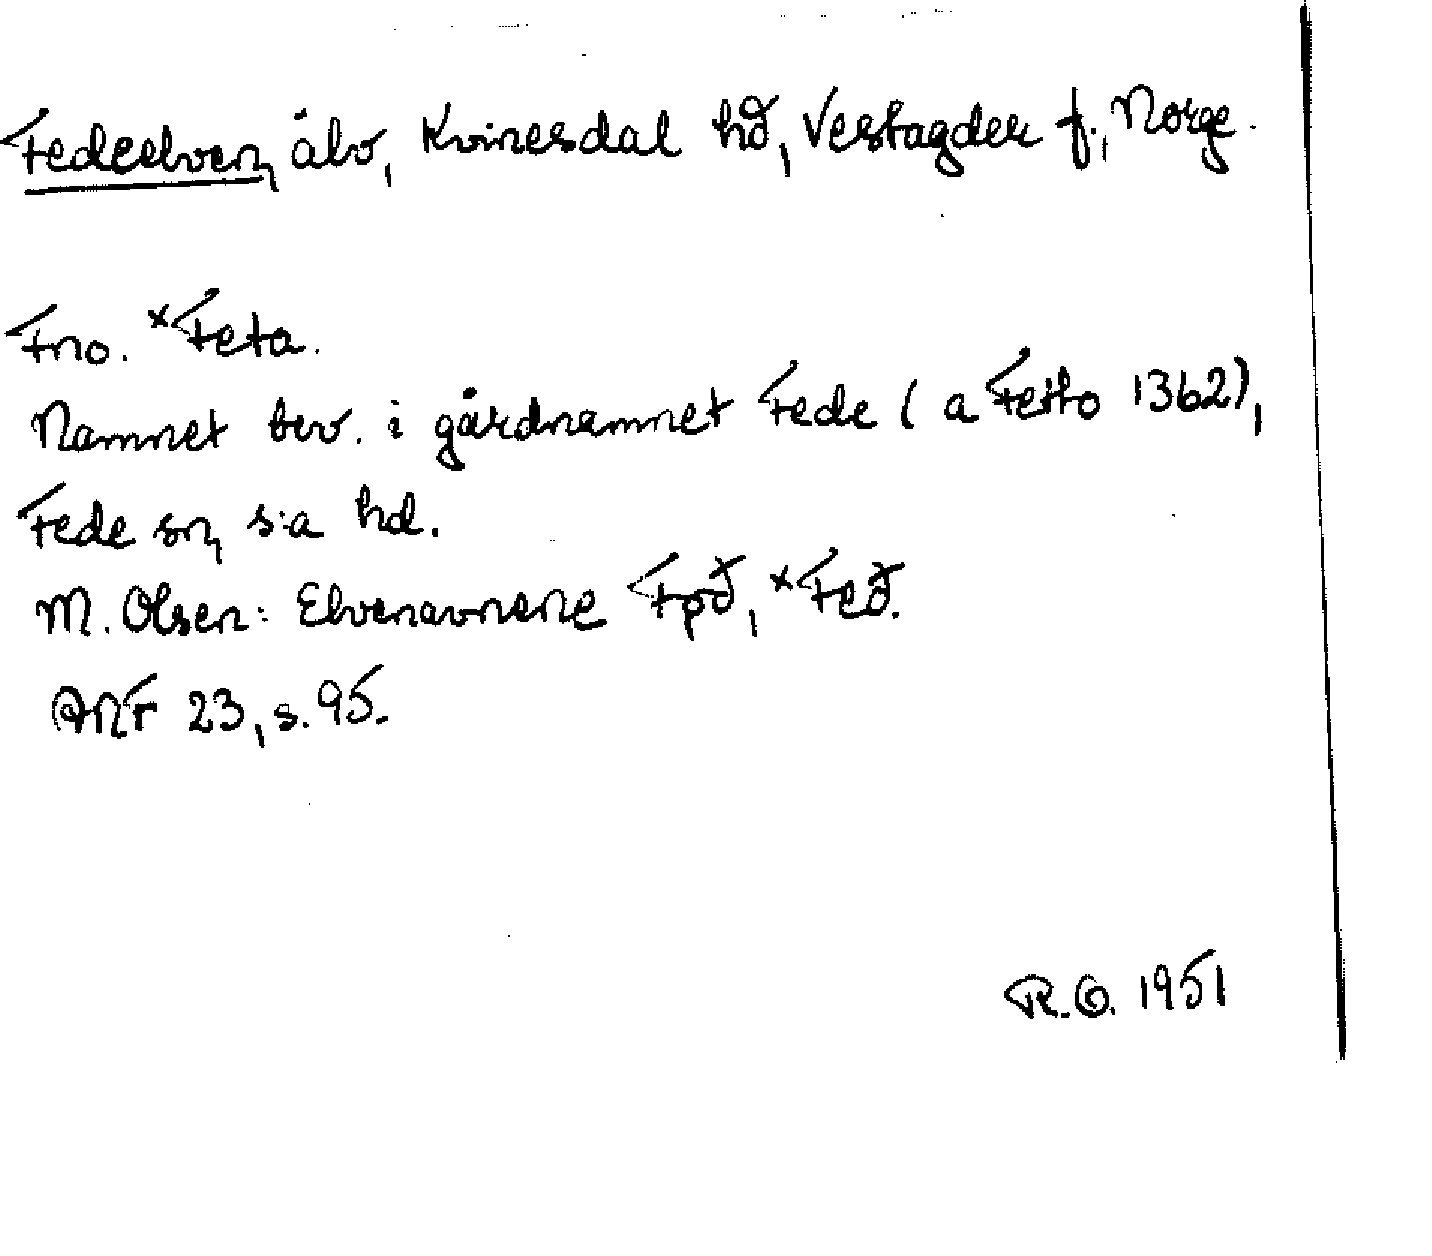 Fedeelven, älv, Kvinesdal hd, Vestagder f., Norge.
Fno. *Feta.
Namnet bev. i gårdnamnet Fede (a Fetto 1362),
Fede sn, s:a hd.
M. Olsen: Elvenavnene Fǫð, *Feð.
ANF 23, s. 95.
R.O. 1951